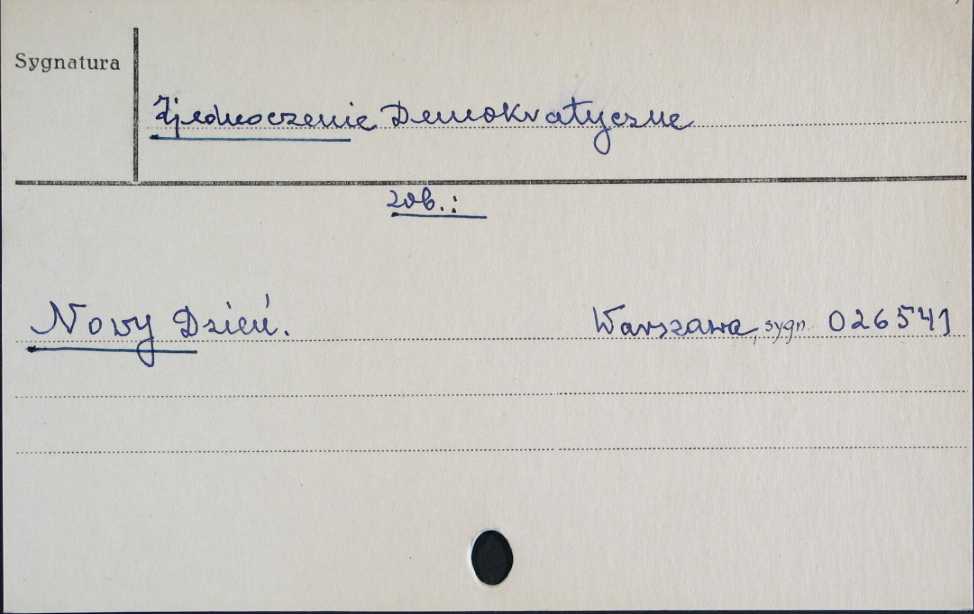 Sygnatura
Zjednoczenie Demokratyczne
zob.:
Nowy Dzień. Warszawa, sygn. 026541